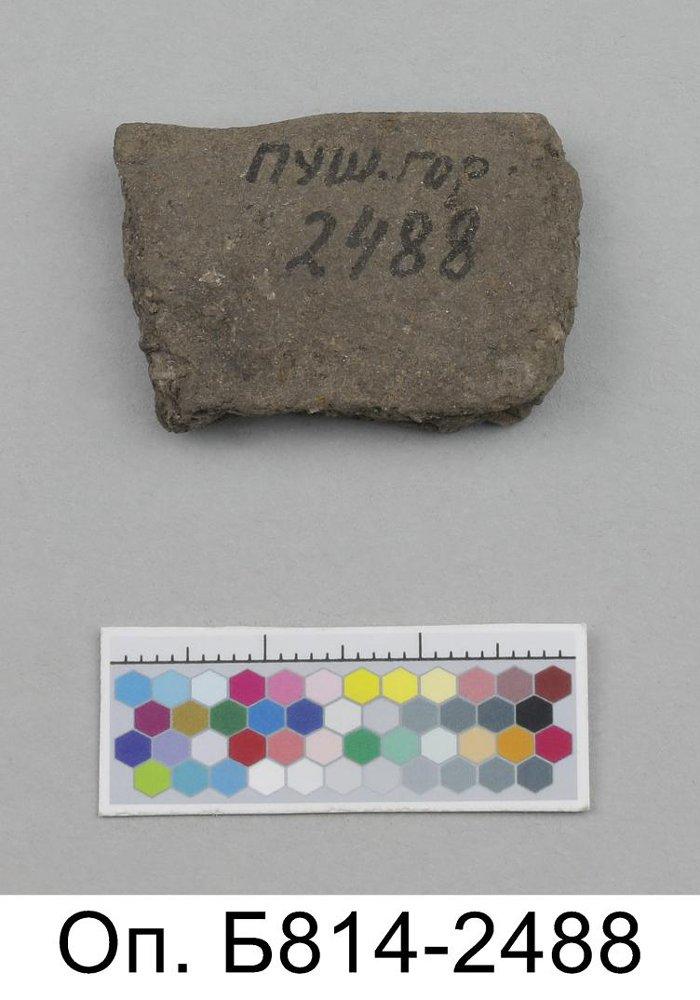 пуш.гор.
2488
Оп. Б814-2488